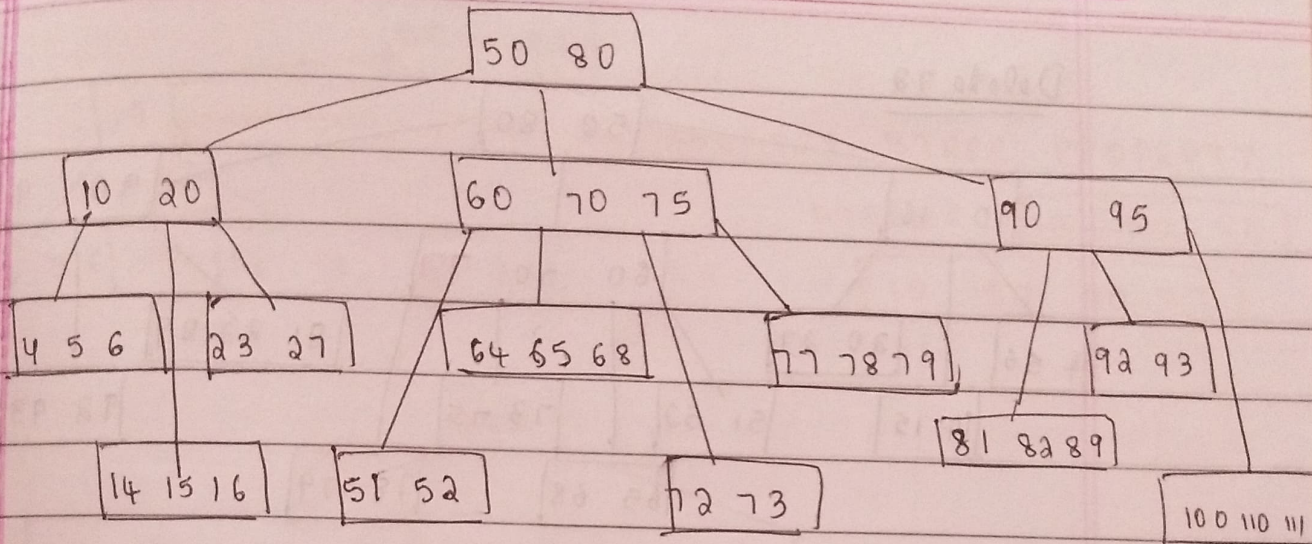 50 80
10 20
60 70 75
90 95
4 5 6
23 27
64 65 68
77 78 79
92 93
81 82 89
14 15 16
51 52
72 73
100 110 111